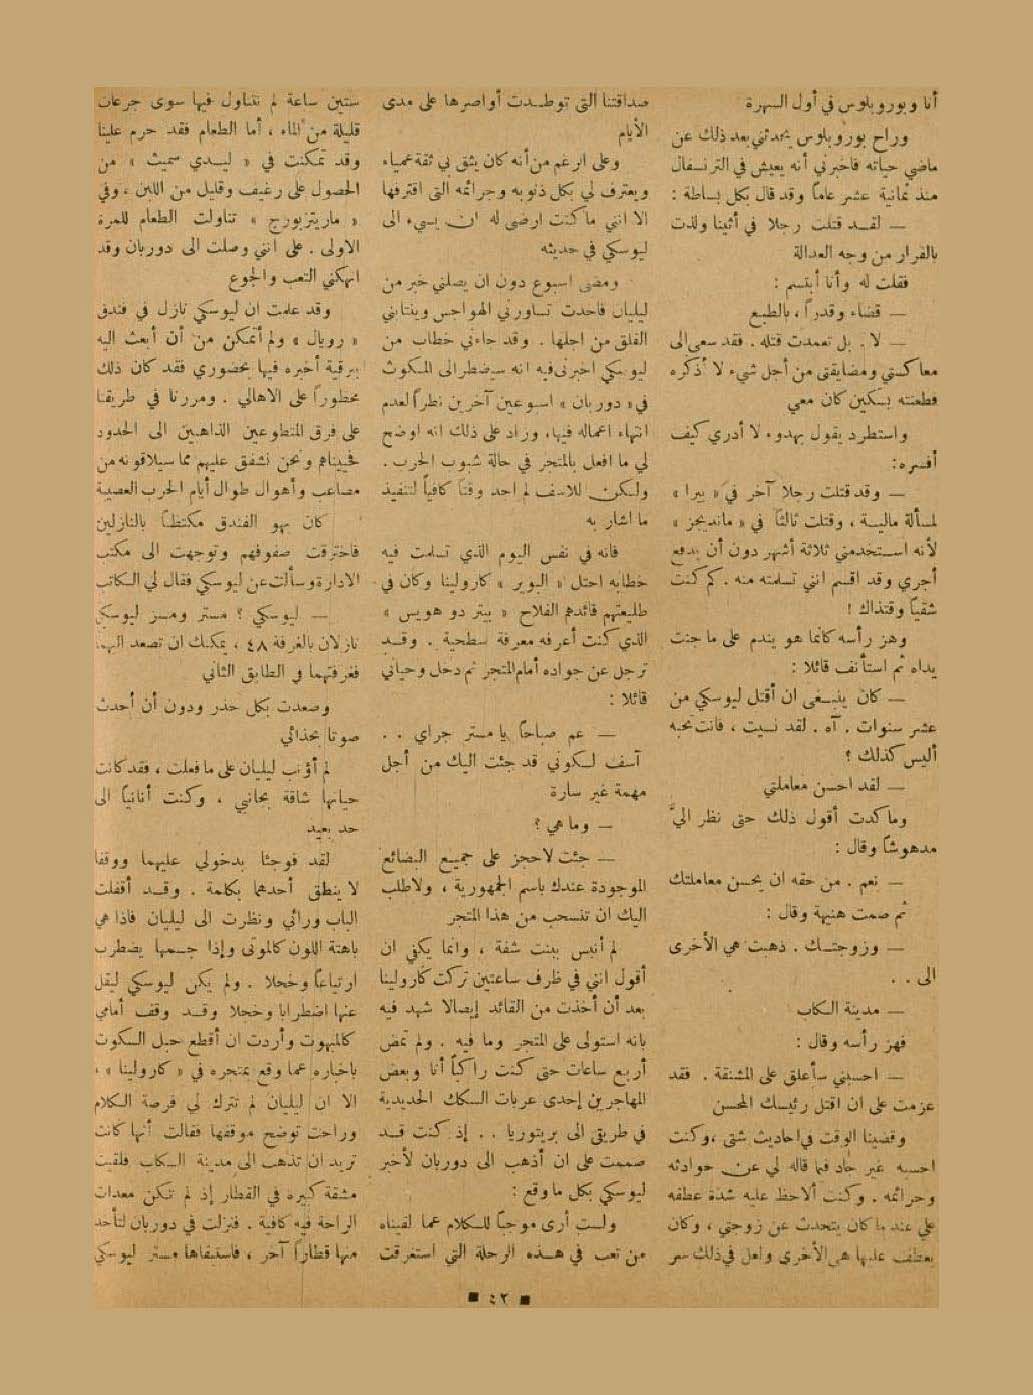 أنا وبوروبلوس في أول السهرة
وراح بوروبلوس يحدثني بعد ذلك عن
ماضي حياته فاخبرني أنه يعيش في الترنسفال
منذ ثمانية عشر عاماً وقد قال بكل بساطة :
— لقد قتلت رجلا في أثينا ولذت
بالفرار من وجه العدالة
فقلت له وأنا أبتسم :
— قضاء وقدراً ، بالطبع
— لا . بل تعمدت قتله . فقد سعى الى
معاكستي ومضايقتي من أجل شيء لا أذكره
فطعنته بسكين كان معي
واستطرد يقول بهدوء لا أدري كيف
أفسره :
— وقد قتلت رجلا آخر في « بيرا »
لمسألة مالية ، وقتلت ثالثاً في « مانديجز »
لأنه استخدمني ثلاثة أشهر دون أن يدفع
أجري وقد اقسم انني تسلمته منه . كم كنت
شقياً وقتذاك !
وهز رأسه كأنما هو يندم على ما جنت
يداه ثم استأنف قائلا :
— كان ينبغي ان أقتل ليوسكي من
عشر سنوات . آه . لقد نسيت ، فانت تحبه
أليس كذلك ؟
— لقد احسن معاملتي
وما كدت أقول ذلك حتى نظر اليَّ
مدهوشاً وقال :
— نعم . من حقه ان يحسن معاملتك
ثم صمت هنيهة وقال :
— وزوجتك . ذهبت هي الأخرى
الى . .
— مدينة الكاب
فهز رأسه وقال :
— احسبني سأعلق على المشنقة . فقد
عزمت على ان اقتل رئيسك المحسن
وقضينا الوقت في احاديث شتى ، وكنت
احسبه غير جاد فيما قاله لي عن حوادثه
وجرائمه . وكنت ألاحظ عليه شدة عطفه
علي عندما كان يتحدث عن زوجتي ، وكان
يعطف عليها هي الأخرى ولعل في ذلك سر
صداقتنا التي توطدت أواصرها على مدى
الأيام
وعلى الرغم من أنه كان يثق بي ثقة عمياء
ويعترف لي بكل ذنوبه وجرائمه التي اقترفها
الا انني ما كنت ارضى له ان يسيء الى
ليوسكي في حديثه
ومضى اسبوع دون ان يصلني خبر من
ليليان فاخذت تساورني الهواجس وينتابني
القلق من اجلها . وقد جاءني خطاب من
ليوسكي اخبرني فيه انه سيضطر الى المكوث
في « دوربان » اسبوعين آخرين نظراً لعدم
انتهاء اعماله فيها ، وزاد على ذلك انه اوضح
لي ما افعل بالمتجر في حالة شبوب الحرب .
ولكن للاسف لم اجد وقتاً كافياً لتنفيذ
ما اشار به
فانه في نفس اليوم الذي تسلمت فيه
خطابه احتل « البوير » كارولينا وكان في
طليعتهم قائدهم الفلاح « بيتر دو هويس »
الذي كنت أعرفه معرفة سطحية . وقد
ترجل عن جواده أمام المتجر ثم دخل وحياني
قائلا :
— عم صباحاً يا مستر جراي . .
آسف لكوني قد جئت اليك من أجل
مهمة غير سارة
— وما هي ؟
— جئت لاحجز على جميع البضائع
الموجودة عندك باسم الجمهورية ، ولاطلب
اليك ان تنسحب من هذا المتجر
لم أنبس ببنت شفة ، وانما يكفي ان
أقول انني في ظرف ساعتين تركت كارولينا
بعد أن أخذت من القائد إيصالا شهد فيه
بانه استولى على المتجر وما فيه . ولم تمض
أربع ساعات حتى كنت راكباً أنا وبعض
المهاجرين إحدى عربات السكك الحديدية
في طريقي الى بريتوريا . . إذ كنت قد
صممت على ان أذهب الى دوربان لأخبر
ليوسكي بكل ما وقع :
ولست أرى موجباً للكلام عما لقيناه
من تعب في هذه الرحلة التي استغرقت
ستين ساعة لم نتناول فيها سوى جرعات
قليلة من الماء ، أما الطعام فقد حرم علينا
وقد تمكنت في « ليدي سميث » من
الحصول على رغيف وقليل من اللبن ، وفي
« ماريتزبورج » تناولت الطعام للمرة
الاولى . على انني وصلت الى دوربان وقد
انهكني التعب والجوع
وقد علمت ان ليوسكي نازل في فندق
« رويال » ولم أتمكن من أن أبعث اليه
ببرقية أخبره فيها بحضوري فقد كان ذلك
محظوراً على الاهالي . ومررنا في طريقنا
على فرق المتطوعين الذاهبين الى الحدود
فحييناهم ونحن نشفق عليهم مما سيلاقونه من
مصاعب وأهوال طوال أيام الحرب العصيبة
كان بهو الفندق مكتظاً بالنازلين
فاخترقت صفوفهم وتوجهت الى مكتب
الادارة وسألت عن ليوسكي فقال لي الكاتب
— ليوسكي ؟ مستر ومسز ليوسكي
نازلان بالغرفة ٤٨ ، يمكنك ان تصعد اليهما
فغرفتهما في الطابق الثاني
وصعدت بكل حذر ودون أن أحدث
صوتاً بحذائي
لم أؤنب ليليان على ما فعلت ، فقد كانت
حياتها شاقة بجانبي ، وكنت أنانياً الى
حد بعيد
لقد فوجئا بدخولي عليهما ووقفا
لا ينطق أحدهما بكلمة . وقد أقفلت
الباب ورائي ونظرت الى ليليان فاذا هي
باهتة اللون كالموتى وإذا جسمها يضطرب
ارتياعاً وخجلا . ولم يكن ليوسكي ليقل
عنها اضطرابا وخجلا وقد وقف أمامي
كالمبهوت وأردت ان أقطع حبل السكوت
باخباره عما وقع بمتجره في « كارولينا » ،
الا ان ليليان لم تترك لي فرصة الكلام
وراحت توضح موقفها فقالت أنها كانت
تريد ان تذهب الى مدينة الكاب فلقيت
مشقة كبيرة في القطار إذ لم تكن معدات
الراحة فيه كافية . فنزلت في دوربان لتأخذ
منها قطاراً آخر ، فاستبقاها مستر ليوسكي
■ ٤٢ ■